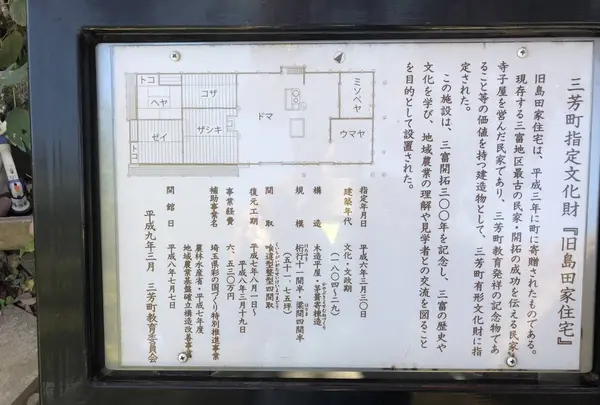 三芳町指定文化財『旧島田家住宅』
旧島田家住宅は、平成三年に町に寄贈されたものである。
現存する三富地区最古の民家・開拓の成功を伝える民家・
寺子屋を営んだ民家であり、三芳町教育発祥の記念物であ
ること等の価値を持つ建造物として、三芳町有形文化財に指
定された。
この施設は、三富開拓三〇〇年を記念し、三富の歴史や
文化を学び、地域農業の理解や見学者との交流を図ること
を目的として設置された。
指定年月日 平成六年三月三〇日
建築年代 文化・文政期
(一八〇四〜二九)
構造 木造平屋・茅葺寄棟造
規模 桁行十一間半・梁間四間半
(五十一・七五坪)
間取 喰違型整型四間取
復元工期 平成七年八月一日〜
平成八年三月十九日
事業経費 六、五三〇万円
補助事業名 埼玉県彩の国づくり特別推進事業
農林水産省・平成七年度
地域農業基盤確立構造改善事業
開館日 平成八年七月七日
平成九年三月 三芳町教育委員会
トコ
ヘヤ
コザ
ゼイ
ザシキ
トコ
ドマ
ミソベヤ
ウマヤ